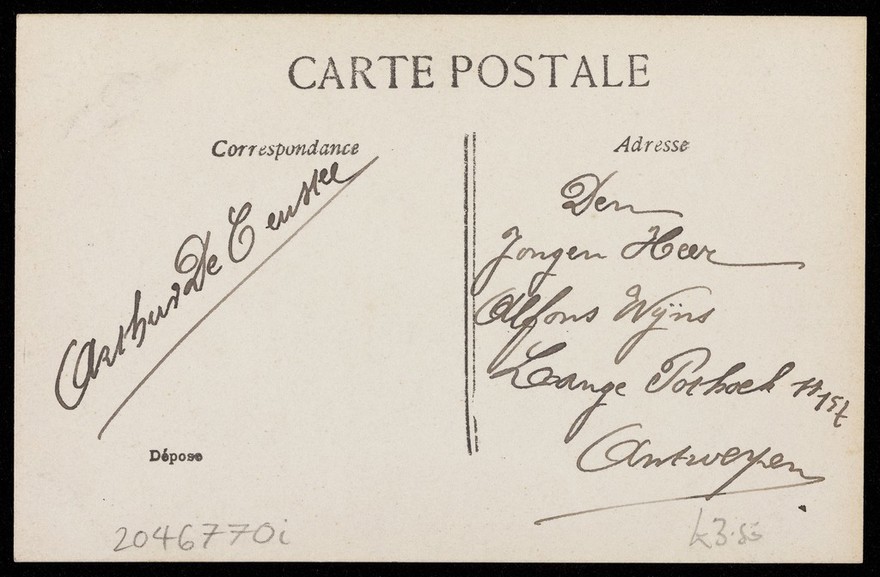 CARTE POSTALE
Correspondance
Arthur De
Dépose
Adresse
Den
Jongen Heer
Alfons Wijns
Lange Pothoek
Antwerpen
2046770i